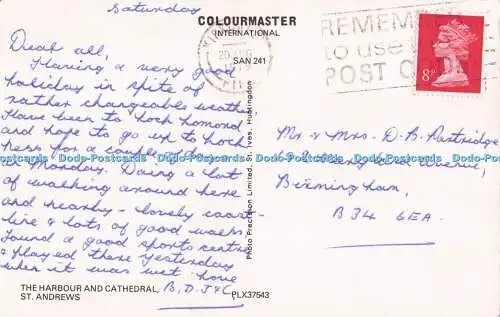 Saturday
Dear all,
Having a very good
holiday in spite of
rather changeable weather,
Have been to Loch Lomond
and hope to go up to Loch
Ness for a couple of
Monday. Doing a lot
of walking around here
and nearby - lovely coast
line & lots of good walks.
Found a good sports centre
& played there yesterday
when it was wet. Love
B, D, J & C,
THE HARBOUR AND CATHEDRAL,
ST. ANDREWS
PLX37543
COLOURMASTER
INTERNATIONAL
SAN 241
Photo Precision Limited, St. Ives, Huntingdon
REMEMBER
to use
POST CODE
20 AUG
1979
FIFE
8P
Mr & Mrs. D. B. Partridge
Avenue,
Birmingham,
B34 6EA.
Dodo-Postcards Dodo-Postcards Dodo-Postcards Dodo-Postcards Dodo-Postcards Dodo-Postcards